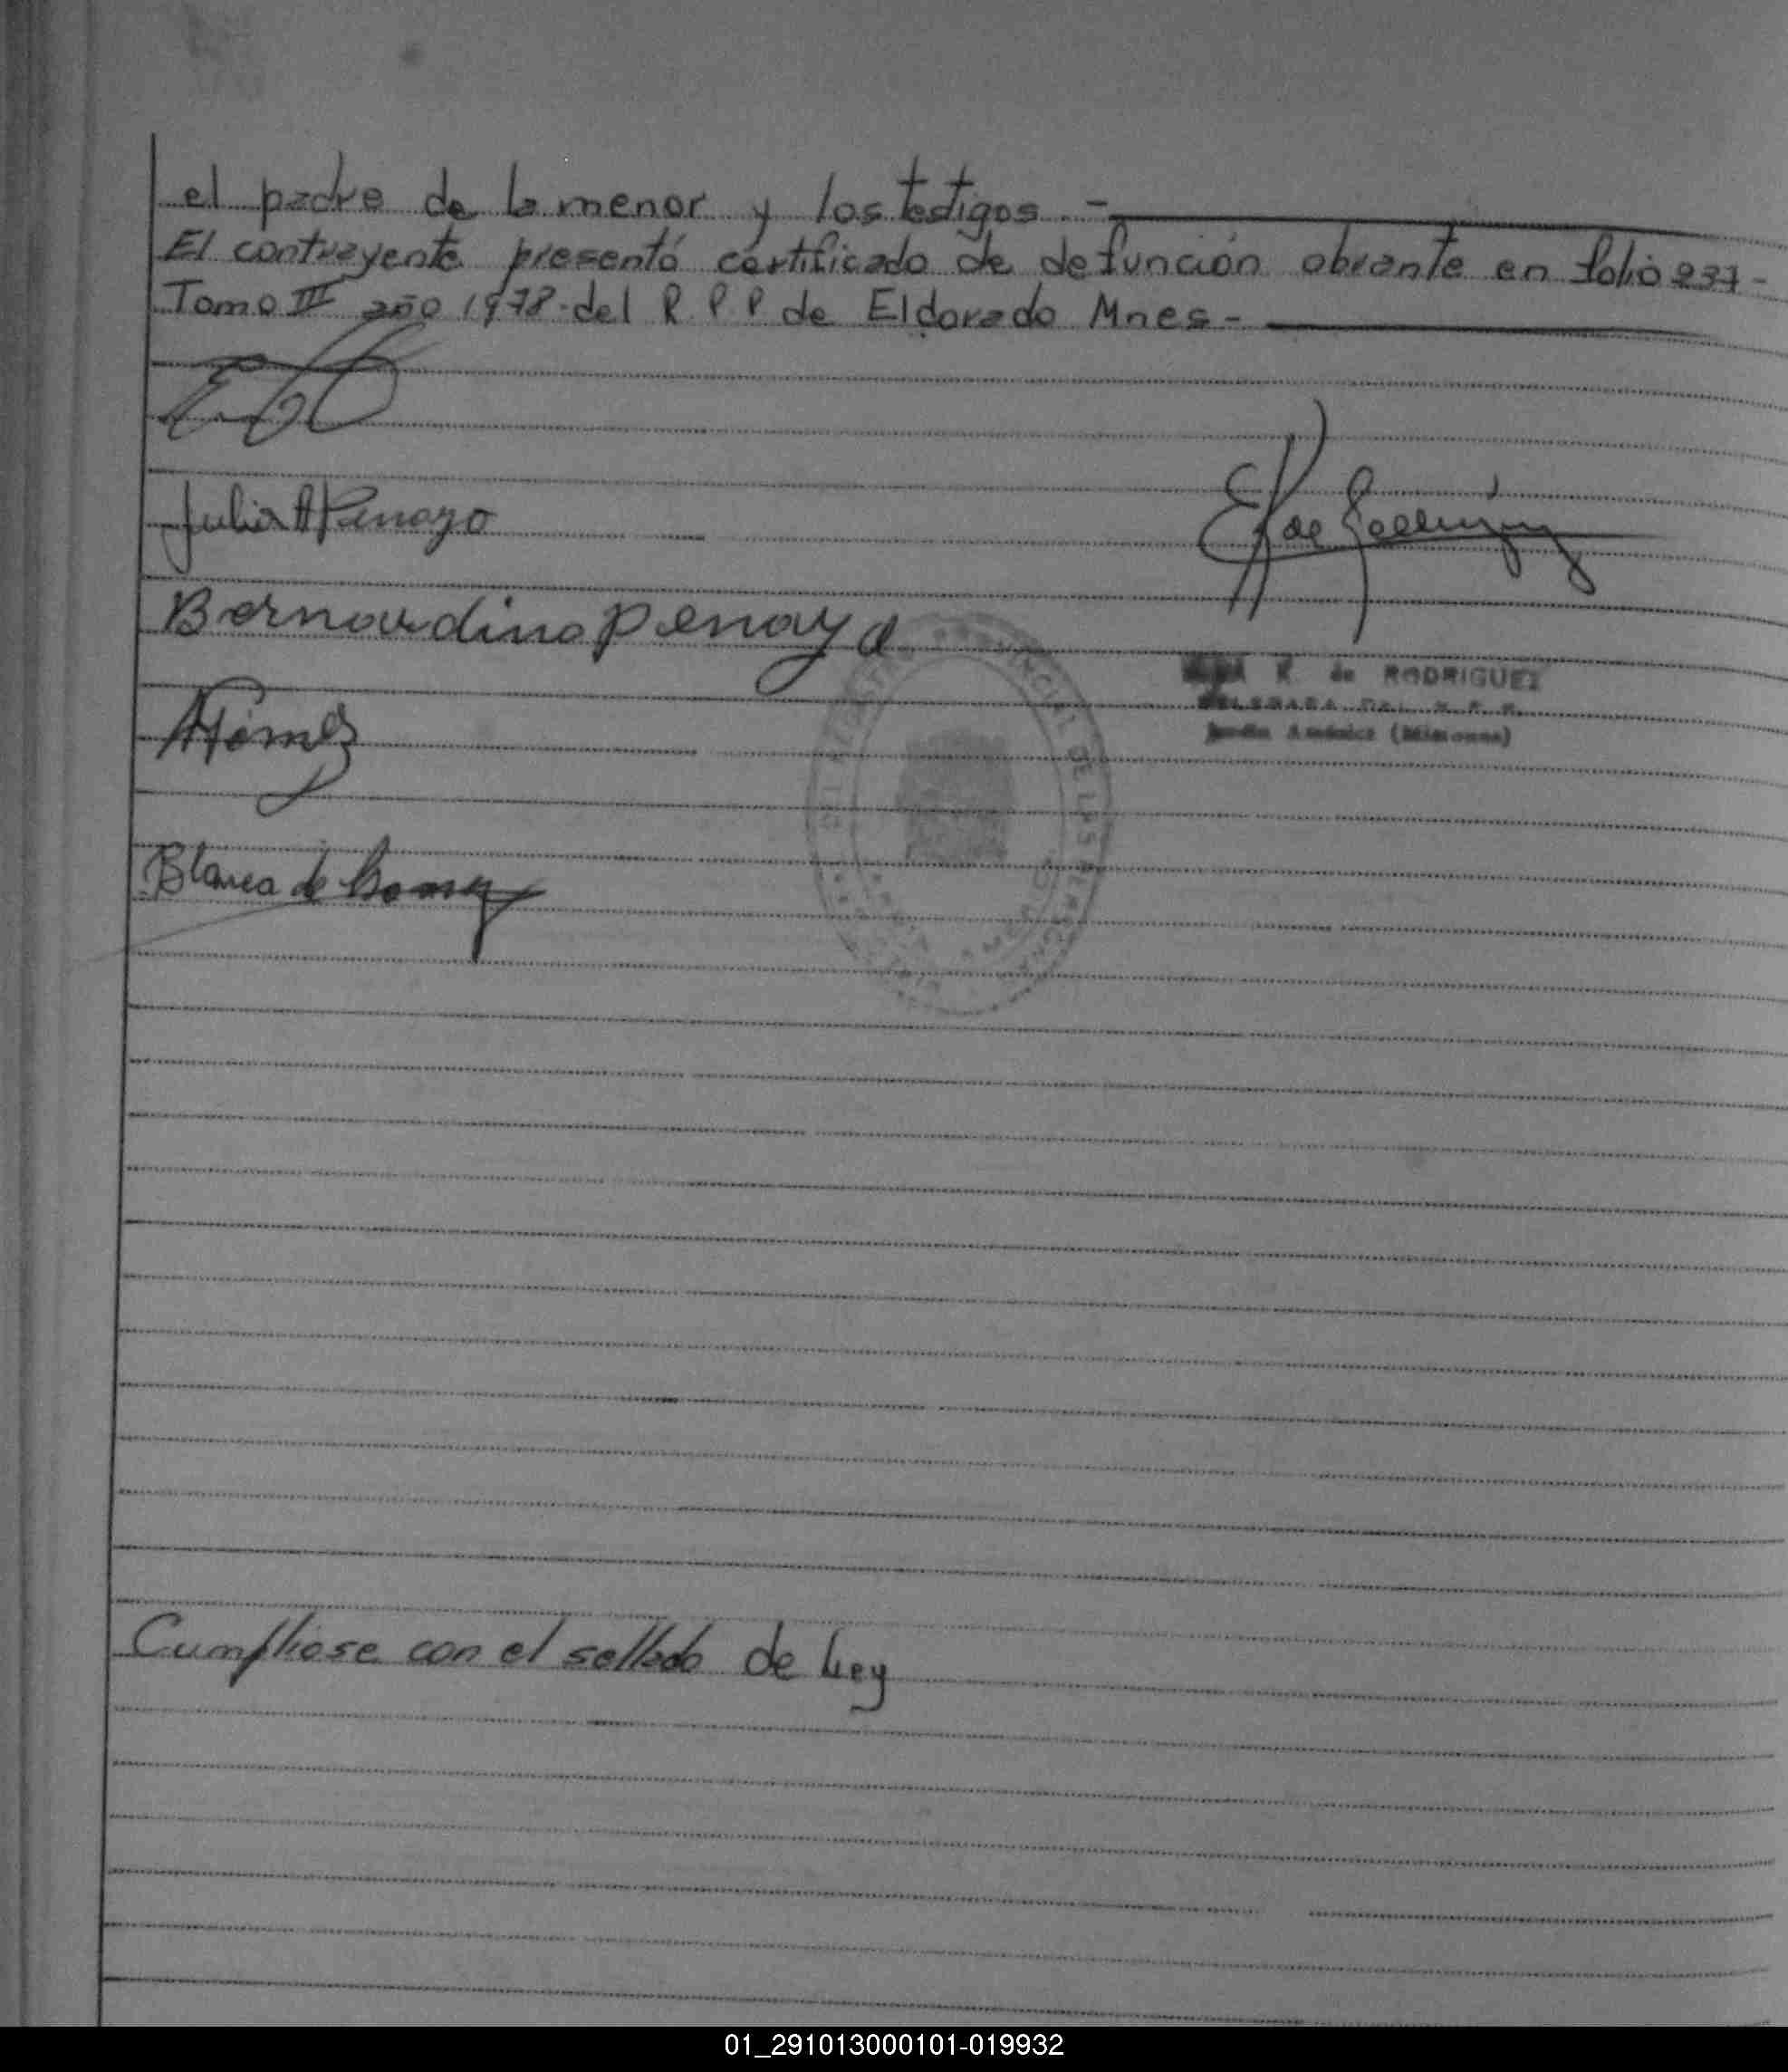 el padre de la menor y los testigos. -
El contrayente presentó certificado de defunción obrante en folio 237-
Tomo III año 1978 del R. P. P de Eldorado Mnes-
Julia A Penayo
E K de Rodriguez
Bernardino penayo
K. de RODRIGUEZ
DELEGADA DEL R. P. P.
Jardín América (Misiones)
AGómez
PROVINCIAL DE LAS PERSONAS
Blanca de Gomez
Cumpliose con el sellado de Ley
01_291013000101-019932